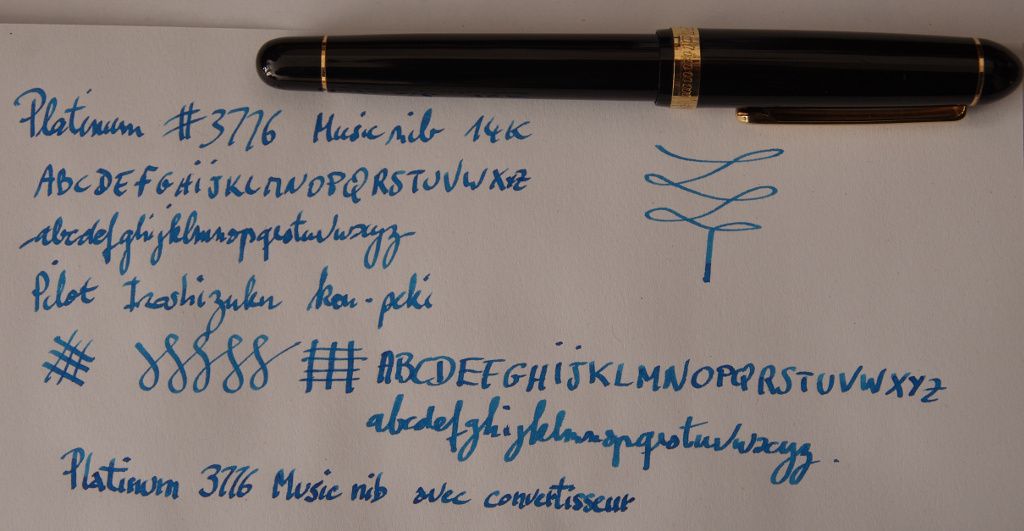 Platinum #3776 Music nib 14K
ABCDEFGHIJKLMNOPQRSTUVWXYZ
abcdefghijklmnopqrstuvwxyz
Pilot Iroshizuku kon-peki
ABCDEFGHIJKLMNOPQRSTUVWXYZ
abcdefghijklmnopqrstuvwxyz.
Platinum 3776 Music nib avec convertisseur